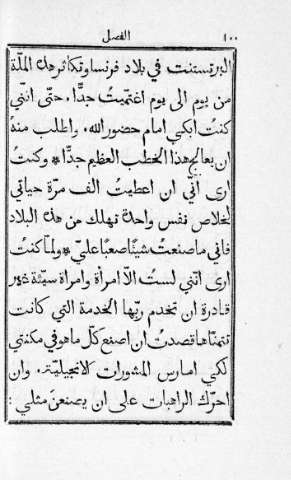 ١٠٠ الفصل
البرتستنت في بلاد فرنسا وتكاثر هذه الملّة
من يوم الى يوم اغتميتُ جدًّا. حتى انّني
كنتُ ابكي امام حضور الله. واطلب منهُ
ان يعالج هذا الخطب العظيم جدًّا * وكنتُ
ارى انّي ان اعطيتُ الف مرّة حياتي
لخلاص نفس واحدة تهلك من هذه البلاد
فاني ما صنعتُ شيئًا صعبًا عليّ * ولمّا كنتُ
ارى انّني لستُ الّا امرأة وامراة سيّئة غير
قادرة ان تخدم ربّها الخدمة التي كانت
تتمنّاها قصدتُ ان اصنع كلّ ما هو في مكنتي
لكي امارس المشورات الانجيليّة. وان
احرّك الراهبات على ان يصنعنَ مثلي :